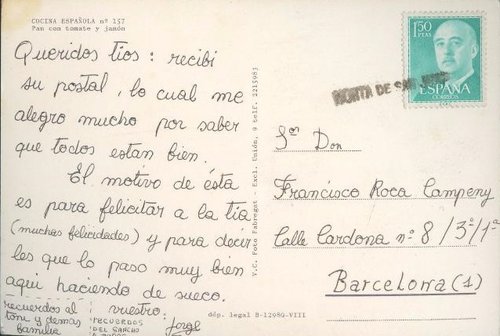 COCINA ESPAÑOLA nº 157
Pan con tomate y jamón
Queridos tios: recibi
su postal, lo cual me
alegro mucho por saber
que todos estan bien.
El motivo de ésta
es para felicitar a la tía
(muchas felicidades) y para decir
les que lo paso muy bien
aqui haciendo de sueco.
recuerdos al nuestro:
toni y demas
familia
RECUERDOS
DEL
Jorge
F.C. Foto Fabregat - Excl. Unión, 9 telf. 2215983
dép. legal B-12980-VIII
1'50
PTAS
ESPAÑA
CORREOS
DE SAN
Sr. Don
Francisco Roca Campeny
Calle Cardona nº 8/3º/1ª
Barcelona (1)